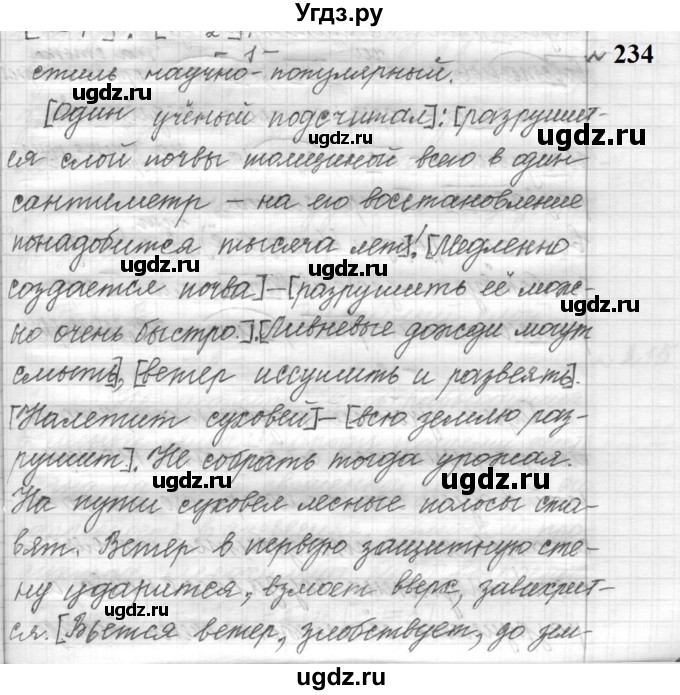 Угдз.ру
234
стиль научно-популярный.
[Один учёный подсчитал]: [разрушит-
ся слой почвы толщиной всего в один
сантиметр – на его восстановление
понадобится тысяча лет]! [Медленно
создается почва] – [разрушить её мож-
но очень быстро.]. [Ливневые дожди могут
смыть], [ветер иссушить и развеять].
[Налетит суховей] – [всю землю раз-
рушит]. Не собрать тогда урожая.
На пути суховея лесные полосы ста-
вят. Ветер в первую защитную сте-
ну ударится, взмоет вверх, завихрит-
ся. [Вьется ветер, злобствует, до зем-
gdz.ru
gdz.ru
gdz.ru
gdz.ru
gdz.ru
gdz.ru
gdz.ru
gdz.ru
gdz.ru
gdz.ru
gdz.ru
gdz.ru
gdz.ru
Угдз.ру